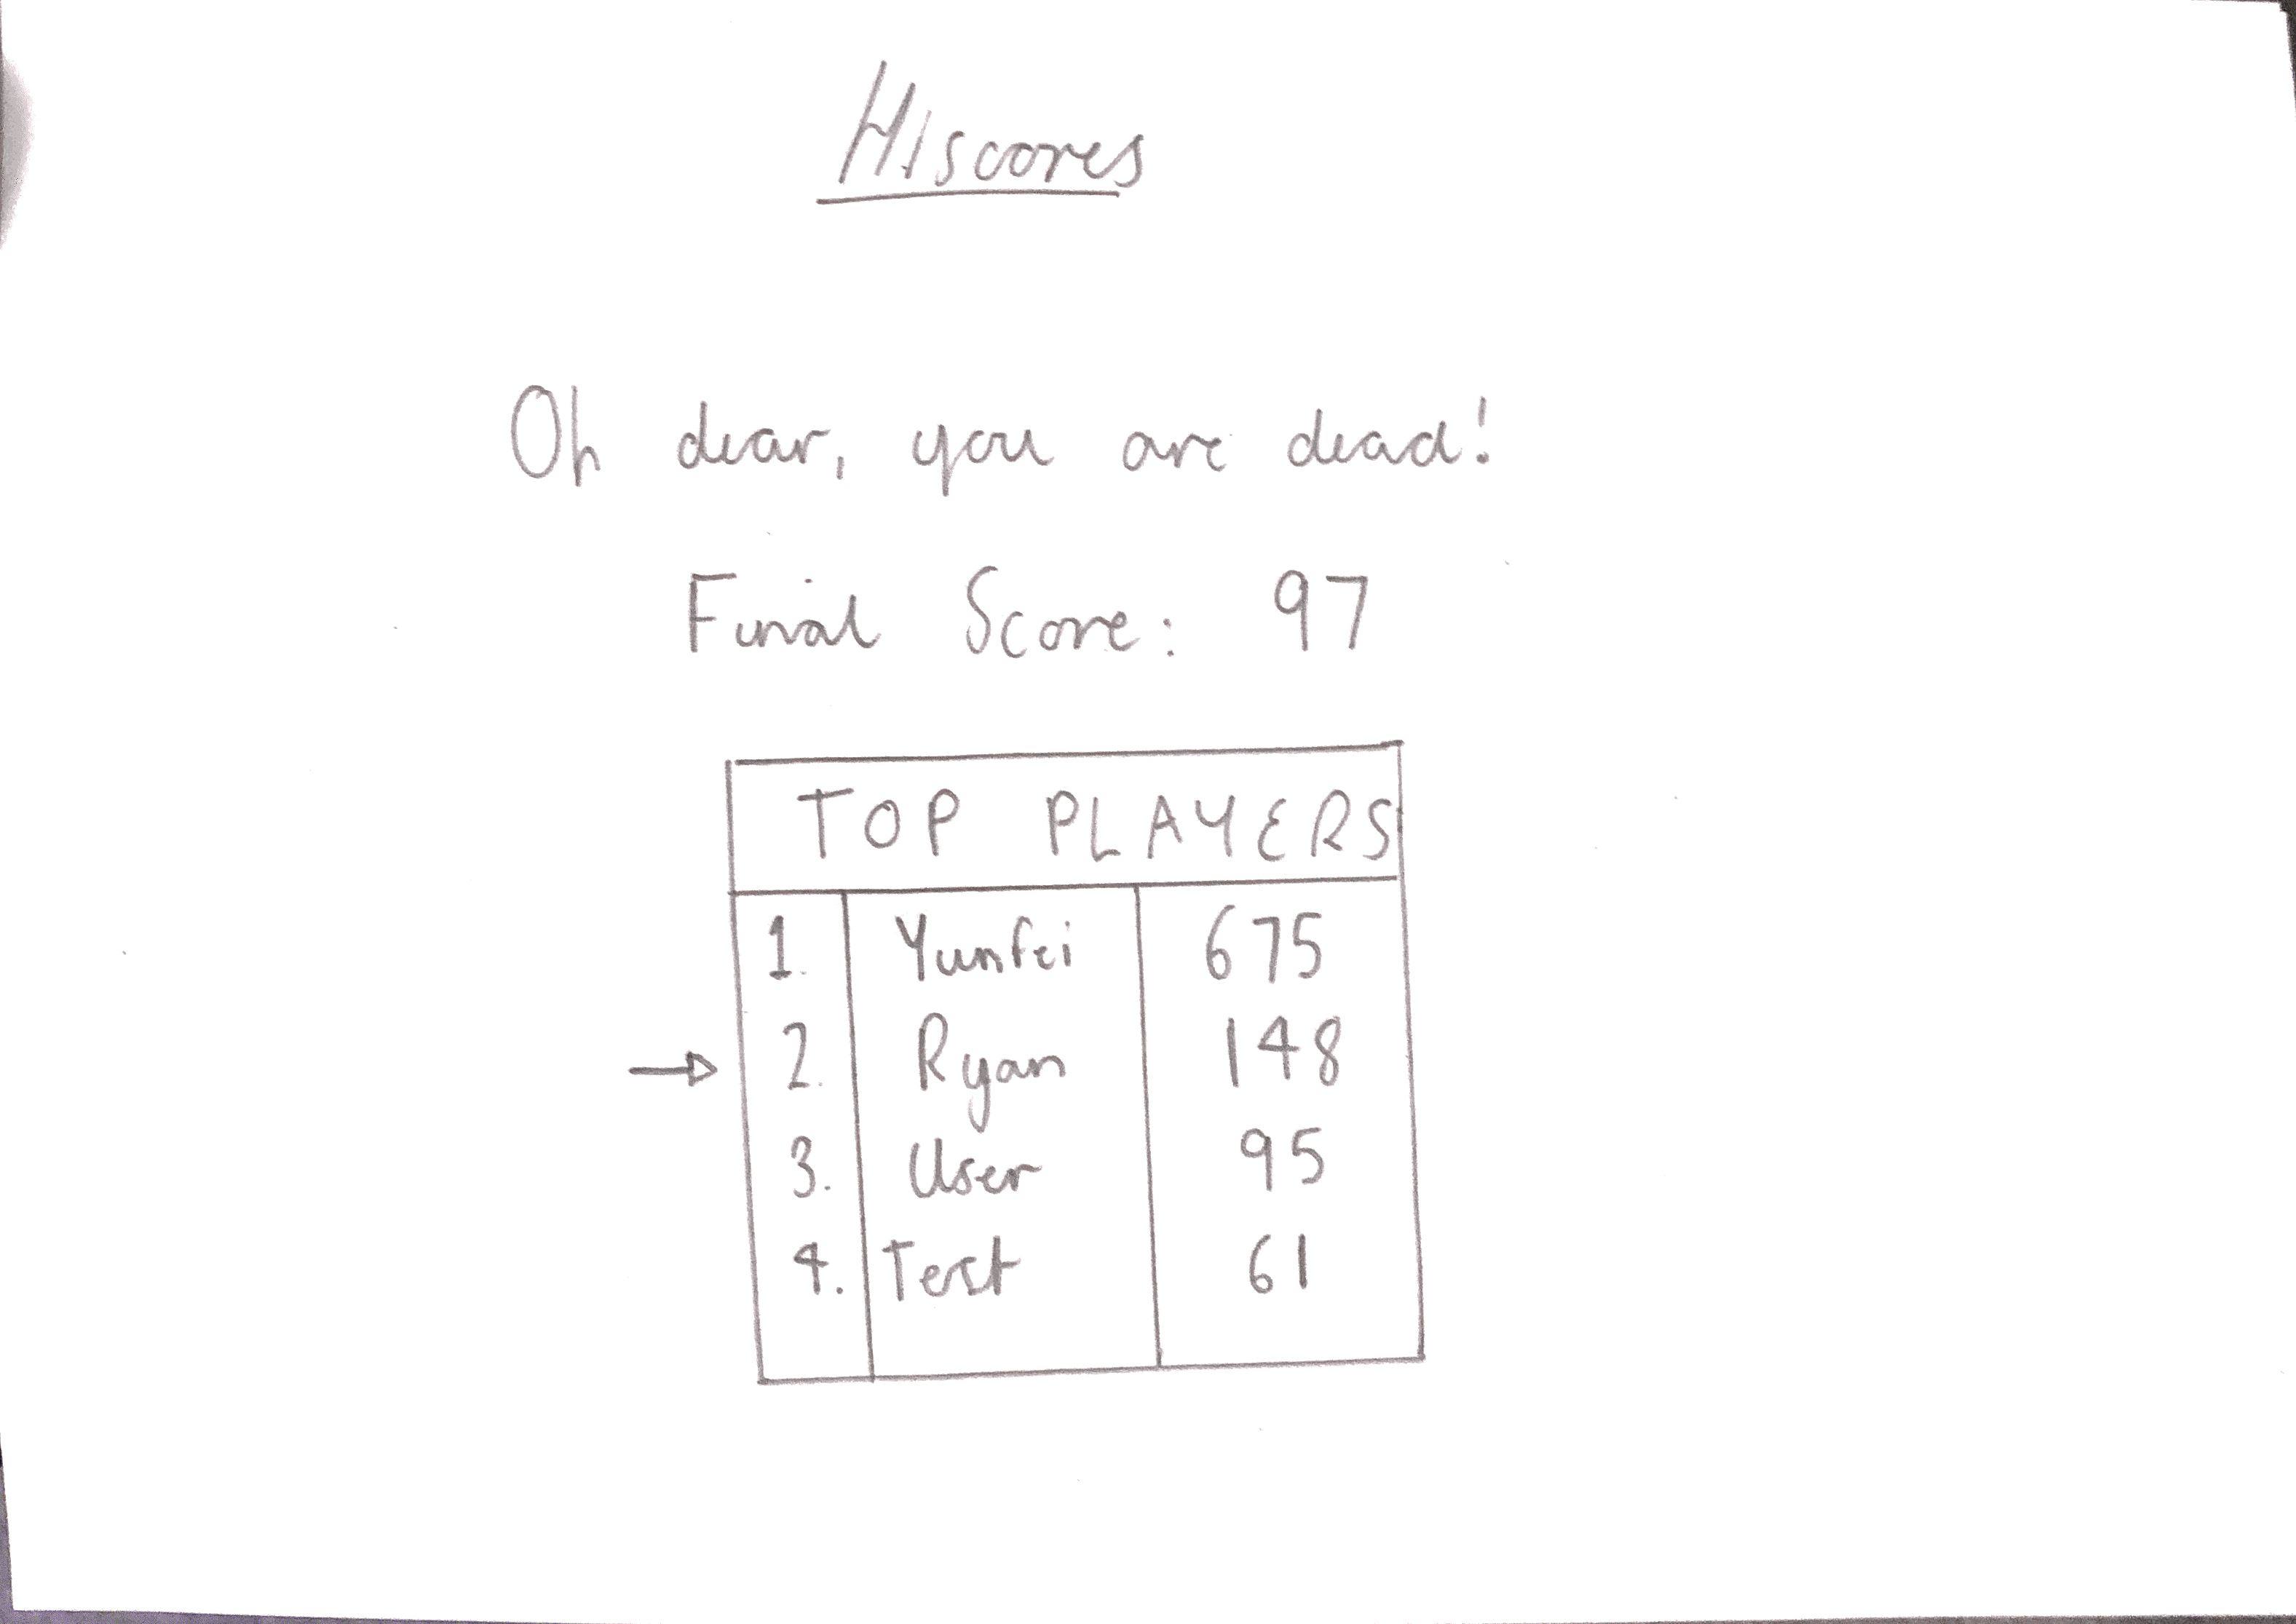 Hiscores
Oh dear, you are dead!
Final Score: 97
TOP PLAYERS
1. Yunfei 675
2. Ryan 148
3. User 95
4. Test 61